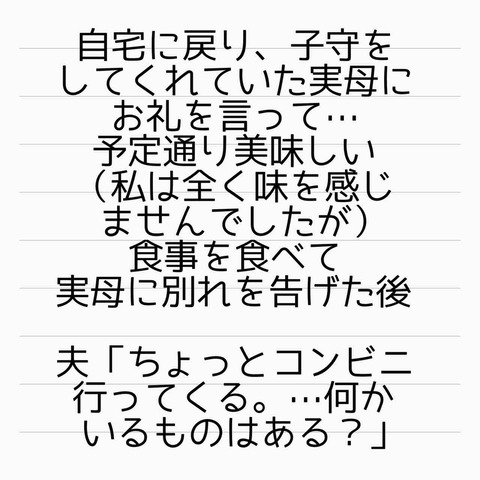 自宅に戻り、子守を
してくれていた実母に
お礼を言って…
予定通り美味しい
（私は全く味を感じ
ませんでしたが）
食事を食べて
実母に別れを告げた後
夫「ちょっとコンビニ
行ってくる。…何か
いるものはある？」